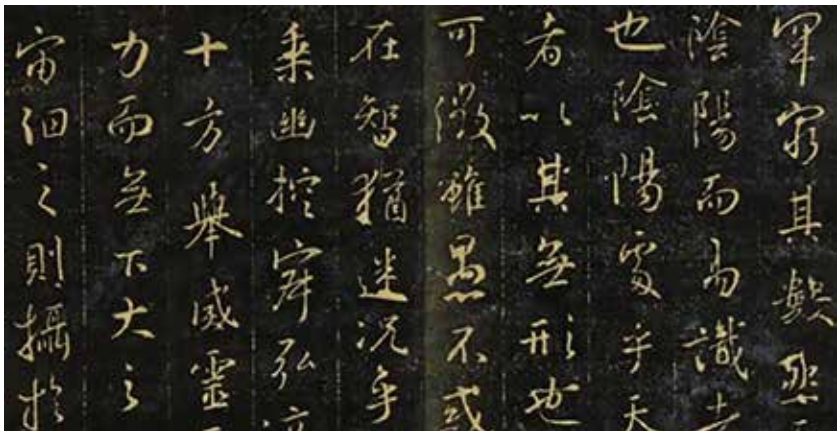 罕窮其數然
陰陽而易識者
也陰陽處乎天
者以其無形也
可徵雖愚不惑
在智猶迷況乎
乘幽控寂弘濟
十方舉威靈
力而無下大之
宙細之則攝於